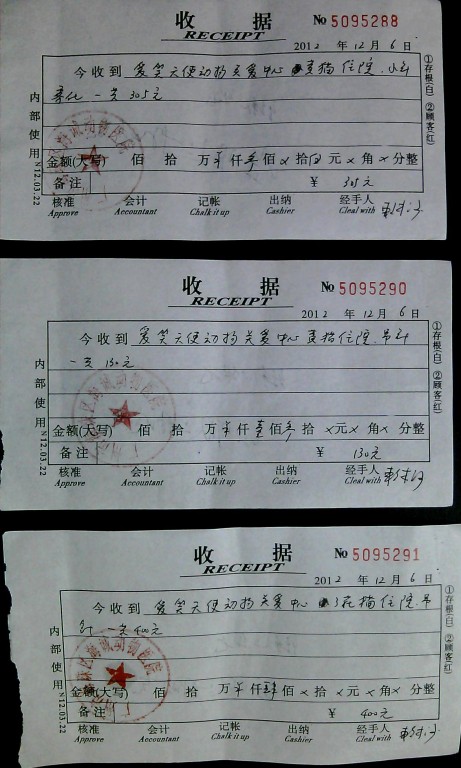 收 据 No 5095288
RECEIPT
2012 年 12 月 6 日
今收到 爱笑天使动物关爱中心 猫住院.
一共 305元
金额(大写) 佰 拾 万 仟 佰 × 拾 元 × 角 × 分整
备注 ¥ 305元
核准 会计 记帐 出纳 经手人
Approve Accountant Chalk it up Cashier Cleal with
内部使用 N12.03.22
①存根(白) ②顾客(红)
收 据 No 5095290
RECEIPT
2012 年 12 月 6 日
今收到 爱笑天使动物关爱中心 猫住院.吊针
一共 130元
金额(大写) 佰 拾 万 仟 壹佰 拾 ×元 × 角 × 分整
备注 ¥ 130元
核准 会计 记帐 出纳 经手人
Approve Accountant Chalk it up Cashier Cleal with
内部使用 N12.03.22
①存根(白) ②顾客(红)
收 据 No 5095291
RECEIPT
2012 年 12 月 6 日
今收到 爱笑天使动物关爱中心 猫住院.吊
针 一共400元
金额(大写) 佰 拾 万 仟 佰 × 拾 × 元 × 角 × 分整
备注 ¥ 400元
核准 会计 记帐 出纳 经手人
Approve Accountant Chalk it up Cashier Cleal with
内部使用 N12.03.22
①存根(白) ②顾客(红)